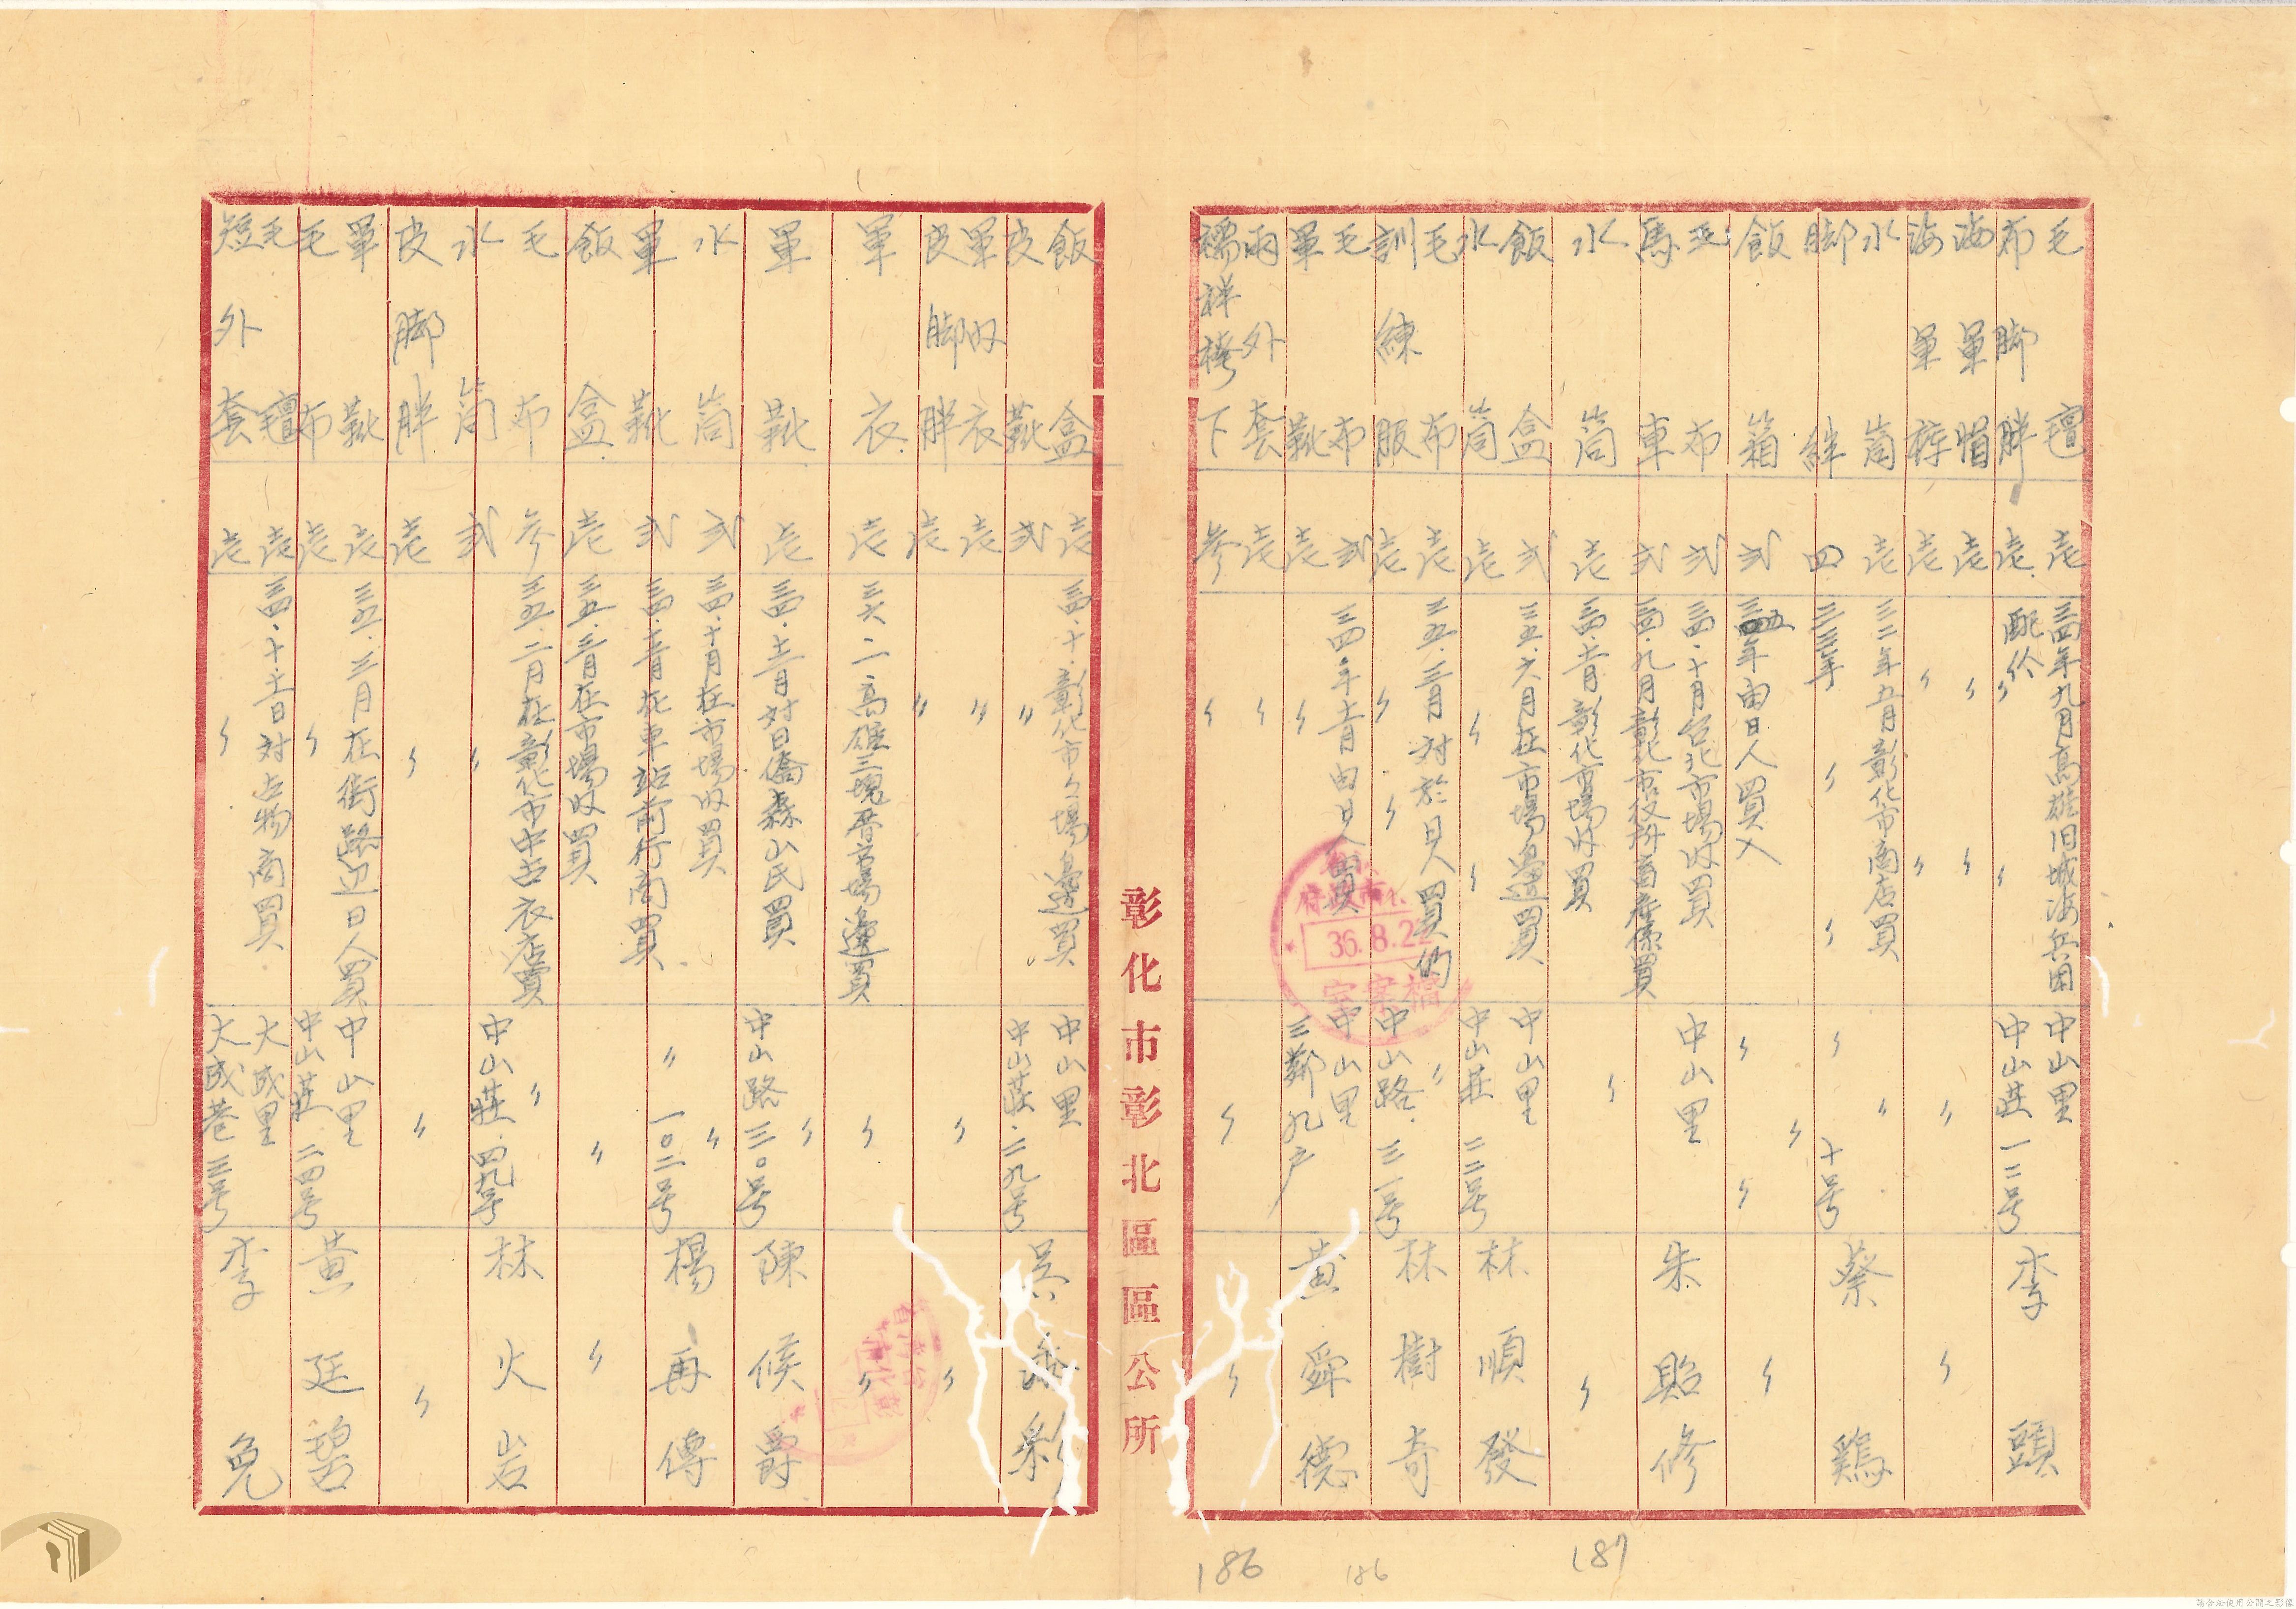 毛氊 壱 三四年九月高雄旧城海兵団 中山里 李頭
布脚胖 壱 配給 〃 〃 中山莊一二号
海軍帽 壱 〃 〃
海軍褲 壱 〃 〃 〃 〃
水筒 壱 三二年五月彰化市商店買 〃 蔡鷄
脚絆 四 三三年 〃 〃 〃 十号
飯箱 弍 三五年由日人買入 〃 〃 〃
毛布 弍 三四．十月台北市場收買 中山里 朱貽修
馬車 弍 三四．九月彰化市役所畜產係買
水筒 壱 三四．十一月彰化市場收買 〃 〃
飯盒 弍 三五．六月在市場邊買 中山里 林順發
水筒 壱 〃 〃 中山莊 二二号
毛布 壱 三五．三月對於日人買的 〃 林樹奇
訓練服 壱 〃 〃 中山路．三一号
毛布 弍 三四．年十一月由日人買 中山里 黃舜德
軍靴 壱 〃 三鄰九戶
雨外套 壱 〃
襦祥袴下 参 〃 〃 〃
彰化市彰北區區公所
飯盒 壱 三四．十．彰化市々場邊買 中山里 吳
皮靴 弍 〃 〃 中山莊．二九号
軍衣 壱 〃
皮脚胖 壱 〃 〃 〃
軍衣 壱 三六．二．高雄三塊厝市場邊買 〃 〃
軍靴 壱 三四．十二月對日僑森山氏買 〃 陳候爵
中山路三〇号
水筒 弍 三四．十月在市場收買 〃
軍靴 弍 三四．十一月在車站前行商買 〃 一〇二号 楊再傳
飯盒 壱 三五．三月在市場收買 〃 〃
毛布 参 三五．二月在彰化市中古衣店買 〃 林火岩
水筒 弍 〃 中山莊．四九号
皮脚胖 壱 〃 〃 〃
軍靴 壱 三五．三月在街路边日人買 中山里 黃廷碧
毛布 壱 〃 中山莊．二四号
毛氊 壱 三四．十．十一日对古物商買 大成里 李免
短外套 壱 〃 大成巷三号
36.8.22
檔案室
186
186
187
請合法使用公開之影像